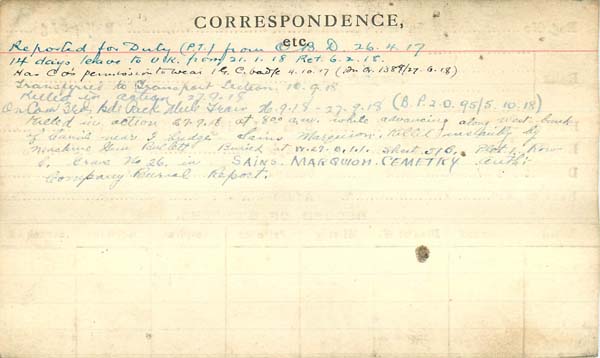 CORRESPONDENCE,
etc.
Reported for Duty (P.T.) from C. B. D. 26.4.17
14 days leave to U.K. from 21.1.18 Ret. 6.2.18.
Has C O's permission to wear 1 G. C. badge 4.10.17 (
Transferred to Transport Section. 10.9.18
Killed in action 27.9.18
On Com Pack 26.9.18 - 27.9.18 (B. P. 2. O. 95/5.10.18)
Killed in action 27.9.18 at 8 a.m. while advancing along West bank
of Canal near Sains Marquion. Killed instantly by
machine Gun Bullet. Buried at Sheet Plot 1. Row
Grave No 26. in SAINS. MARQUION. CEMETRY Auth:
Company Burial Report.